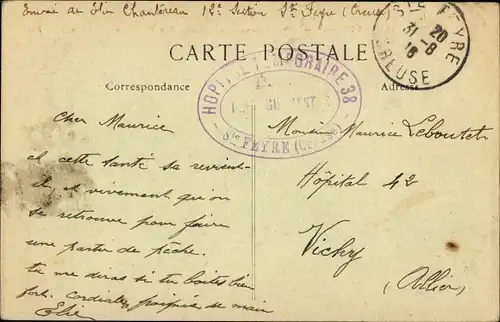 Envoi de Elie Chantereau 12e Section Ste Feyre (Creuse)
STE FEYRE
20
31-8
16
CREUSE
CARTE POSTALE
HOPITAL TEMPORAIRE 38
Ste FEYRE (Creuse)
Correspondance
Adresse
Cher Maurice
et cette santé sa revient-
il, et vivement qu'on
se retrouve pour faire
une partie de pêche.
tu me diras si tu boites bien
fort. Cordiale poignée de main
Elie
Monsieur Maurice Leboutet
Hôpital 42
Vichy
(Allier)